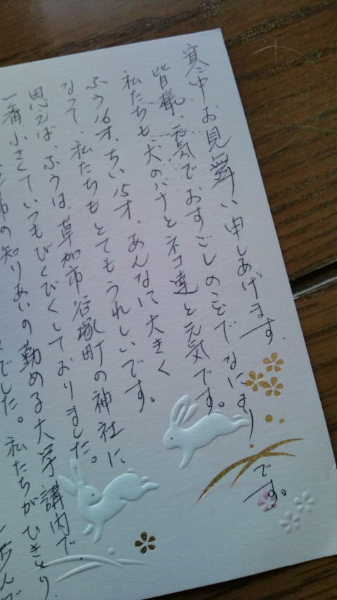 寒中お見舞い申しあげます.
皆様、元気でおすごしのことでなにより
です。
私たちも犬のハナとネコ達と元気です。
ふう16才、ちい15才、あんなに大きく
なって、私たちもとてもうれしいです。
思えば、ふうは、草加市谷塚町の神社に
一番小さくていつもびくびくしておりました。
市の知りあいの勤める大学講内で
でした。私たちがひきとり